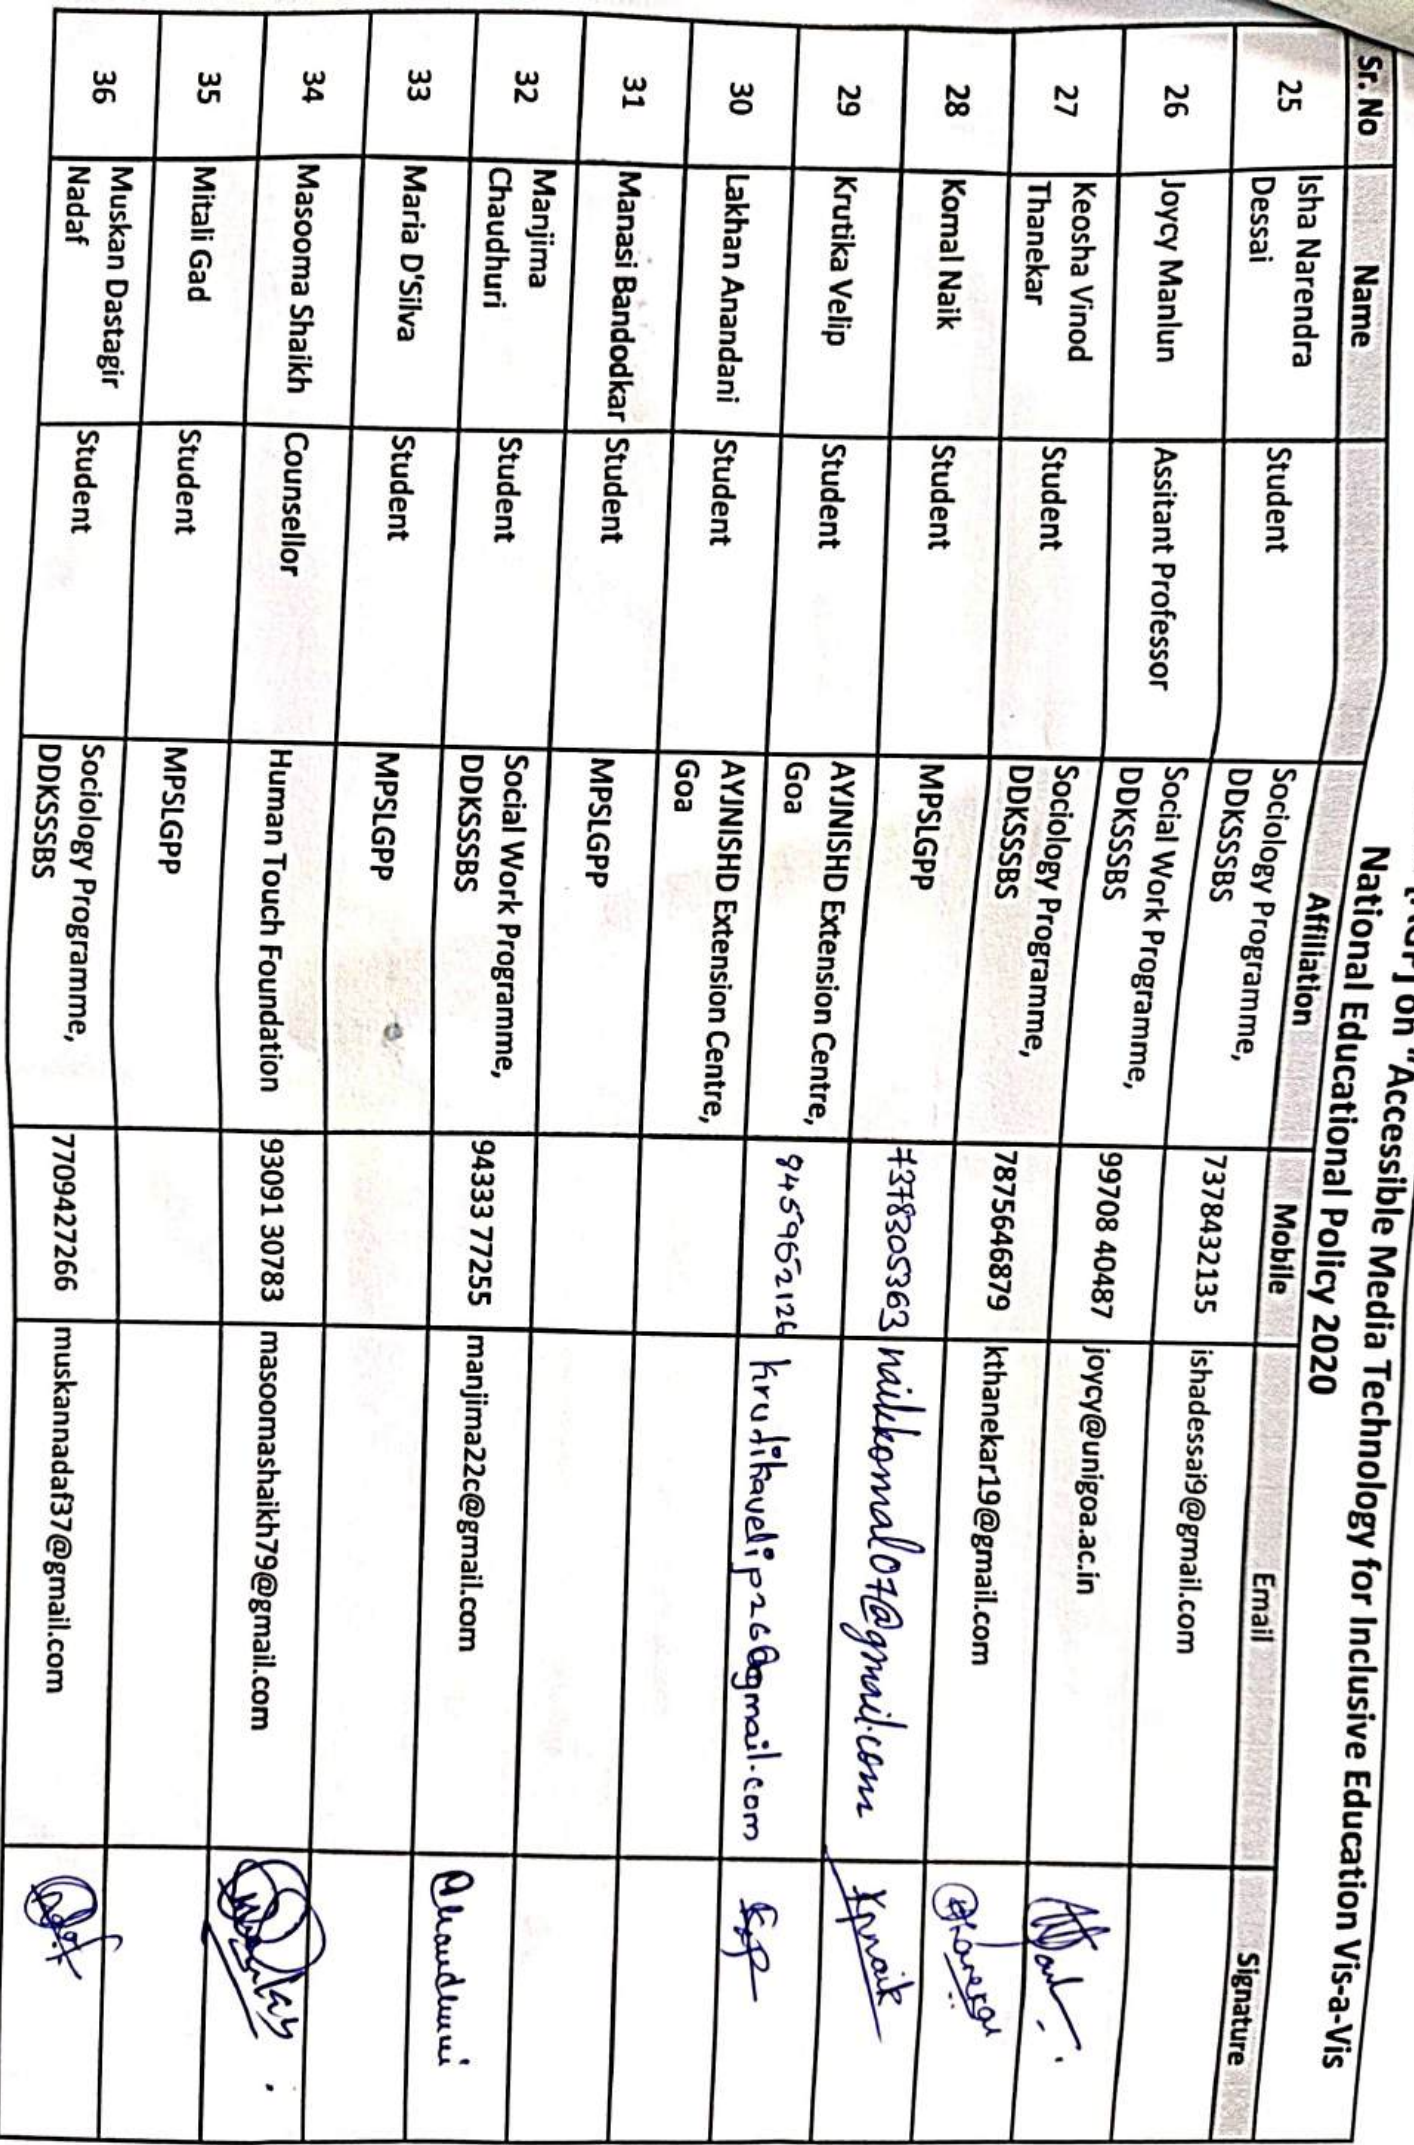 on "Accessible Media Technology for Inclusive Education Vis-a-Vis
National Educational Policy 2020
Sr. No Name Affiliation Mobile Email Signature
25 Isha Narendra Dessai Student Sociology Programme, DDKSSSBS 7378432135 ishadessai9@gmail.com
26 Joycy Manlun Assitant Professor Social Work Programme, DDKSSSBS 99708 40487 joycy@unigoa.ac.in
27 Keosha Vinod Thanekar Student Sociology Programme, DDKSSSBS 7875646879 kthanekar19@gmail.com
28 Komal Naik Student MPSLGPP 7378305363 naikkomal07@gmail.com
29 Krutika Velip Student AYJNISHD Extension Centre, Goa 9459652126 krutikavelip26@gmail.com
30 Lakhan Anandani Student AYJNISHD Extension Centre, Goa
31 Manasi Bandodkar Student MPSLGPP
32 Manjima Chaudhuri Student Social Work Programme, DDKSSSBS 94333 77255 manjima22c@gmail.com
33 Maria D'Silva Student MPSLGPP
34 Masooma Shaikh Counsellor Human Touch Foundation 93091 30783 masoomashaikh79@gmail.com
35 Mitali Gad Student MPSLGPP
36 Muskan Dastagir Nadaf Student Sociology Programme, DDKSSSBS 7709427266 muskannadaf37@gmail.com